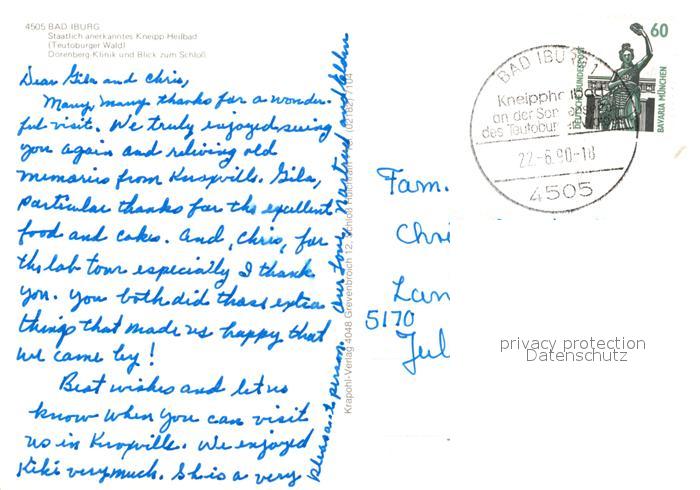 4505 BAD IBURG
Staatlich anerkanntes Kneipp-Heilbad
(Teutoburger Wald)
Dörenberg-Klinik und Blick zum Schloß
Dear Gila and Chris,
Many, many thanks for a wonder-
ful visit. We truly enjoyed seeing
you again and reliving old
memories from Knoxville. Gila,
particular thanks for the excellent
food and cakes. And, Chris, for
the lab tour especially I thank
you. You both did those extra
things that made us happy that
we came by!
Best wishes and let us
know when you can visit
us in Knoxville. We enjoyed
Kiki very much. She is a very
pleasant person. Our love, and
Krapohl-Verlag 4048 Grevenbroich 12, Schloß
BAD IBURG 1
Kneipp
an der
des
22.-6.90-18
4505
60
DEUTSCHE BUNDESPOST
BAVARIA MÜNCHEN
Fam.
Chri
Lan
5170
Jül
privacy protection
Datenschutz